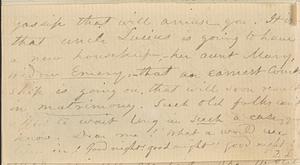 gossip that will amuse you. It is
that uncle Lucius is going to have
a new housekeeper her aunt Mary,
widow Emery, that an earnest Court
ship is going on, that will soon result
in matrimony. Such old folks are
to wait long in such a case, you
know. Dear me! What a world we
in! Good night, good night, good night